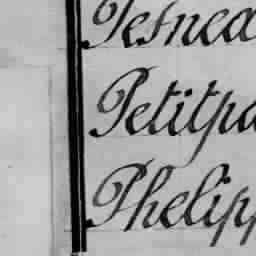 Pesnea
Petitpa
Phelipp